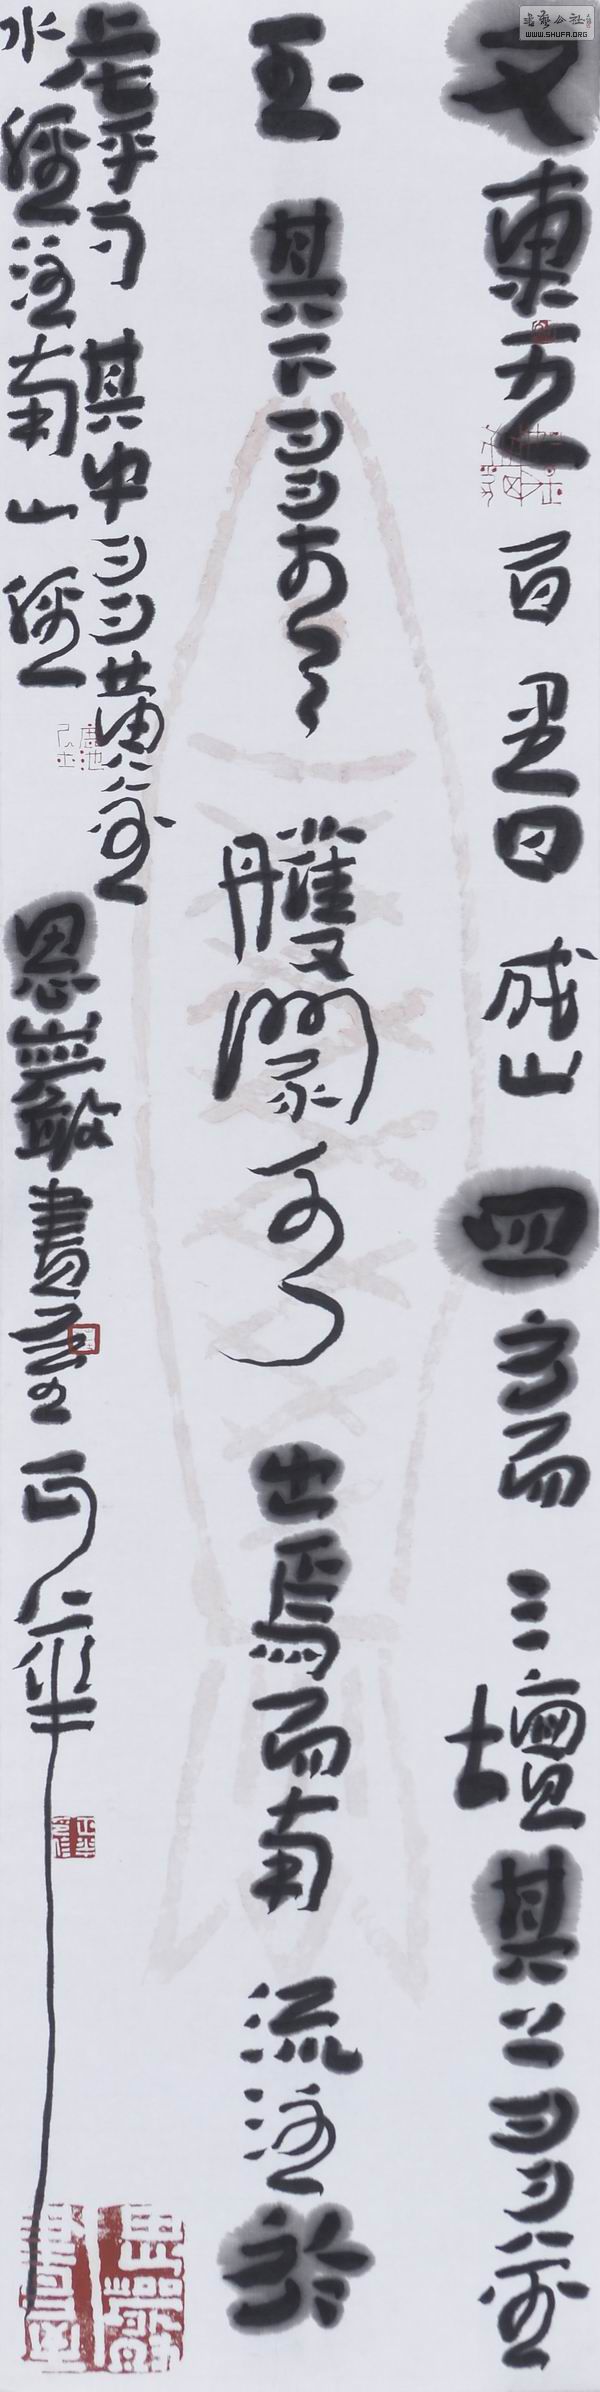 書藝公社
WWW.SHUFA.ORG
又東五百里曰成山四方而三壇其上多金
玉其下多青雘𨴯水出焉而南流注於
虖勺其中多黃金
水經注南山經 書 正華